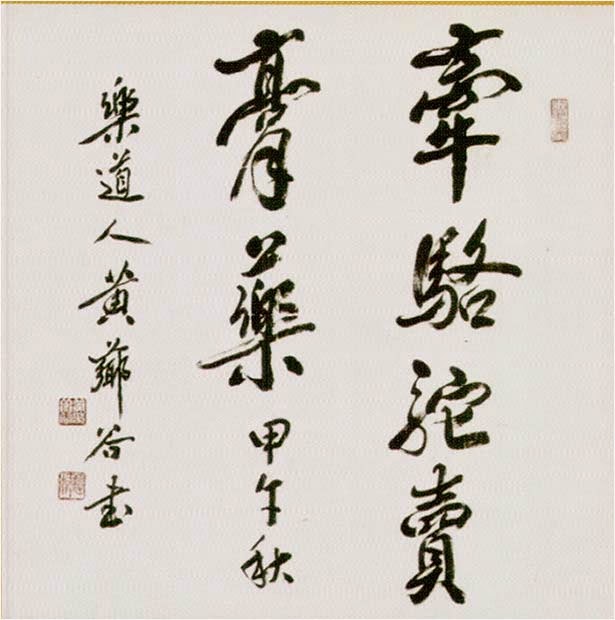 牽駱駝賣
膏藥甲午秋
樂道人黃薌谷書